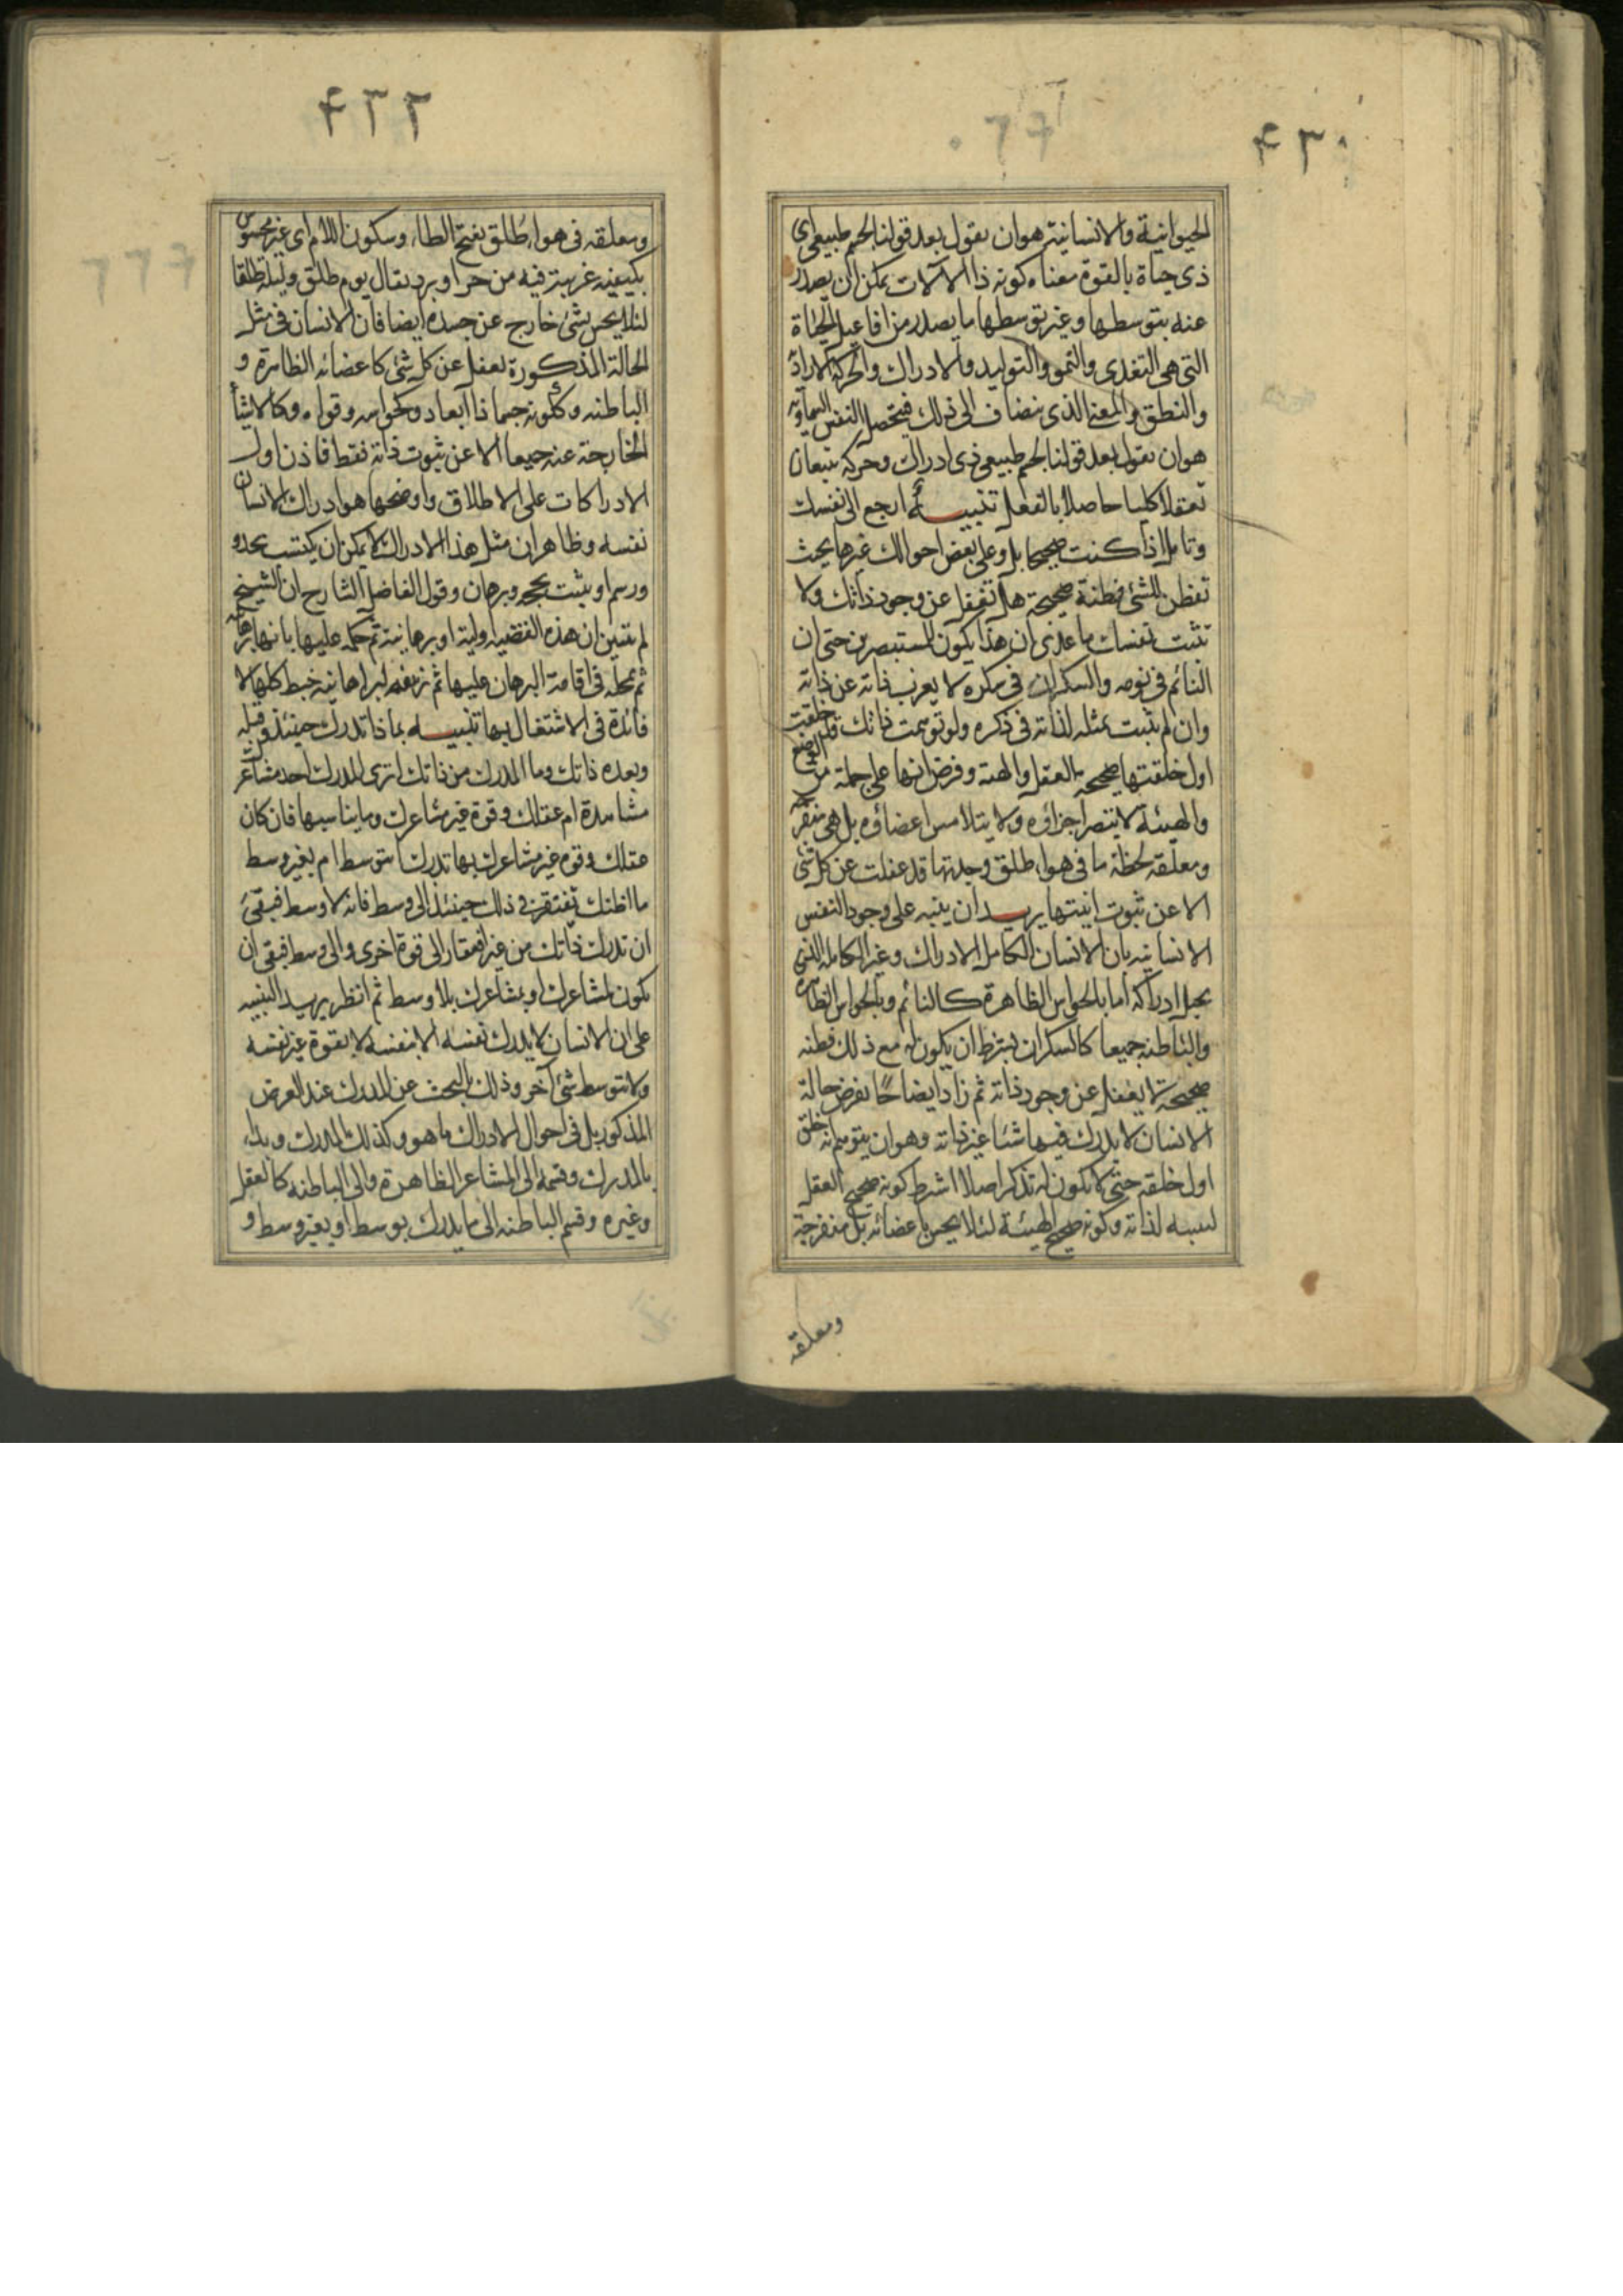 ٤٣٠
الحیوانیة والانسانیة هو ان یقول بعد قولنا لجسم طبیعی ای
ذی حیاة بالقوة معناه کونه ذا الآلات یمکن ان یصدر
عنه بتوسطها وغیر توسطها ما یصدر من افاعیل الحیاة
التی هی التغذی والنمو والتولید والادراک والحرکة الارادیة
والنطق والمعنی الذی ینضاف الی ذلک فیتحصل النفس السماویة
هو ان نقول بعد قولنا لجسم طبیعی ذی ادراک وحرکة یتبعان
تعقلا کلیا حاصلا بالفعل تنبیه ارجع الی نفسک
وتامل اذا کنت صحیحا بل وعلی بعض احوالک غیرها بحیث
تفطن للشئ فطنة صحیحة هل تغفل عن وجود ذاتک ولا
تثبت نفسک ما عندی ان هذا یکون للمستبصر حتی ان
النائم فی نومه والسکران فی سکره لا یعزب ذاته عن ذاته
وان لم یثبت تمثله لذاته فی ذکره ولو توهمت ذاتک قد خلقت
اول خلقتها صحیحة العقل والهیئة وفرض انها علی جملة من الوضع
والهیئة لا یبتصر اجزاؤه ولا یتلامس اعضاؤه بل هی منفرجة
ومعلقة لحظة ما فی هواء طلق وجدتها قد غفلت عن کل شئ
الا عن ثبوت انیتها یرید ان ینبه علی وجود النفس
الانسانیه بان الانسان الکامل الادراک وغیر الکامله الذی
یختل ادراکه اما بالحواس الظاهرة کالنائم وبالحواس الظاهرة
والباطنه جمیعا کالسکران یشترط ان یکون له مع ذلک فطنه
صحیحة لا یغفل عن وجود ذاته ثم زاد ایضاحا بفرض حالة
الانسان لا یدرک فیها شیئا غیر ذاته وهو ان یتوهم انه خلق
اول خلقه حتی لا یکون له تذکر اصلا اشترط کونه صحیح العقل
لتنبه لذاته وکونه صحیح الهیئة لئلا یحس باعضائه بل منفرجة
ومعلقه
٤٣٢
ومعلقه فی هواء طلق بفتح الطاء وسکون اللام ای غیر محسوس
بکیفیة غریبة فیه من حر او برد یقال یوم طلق ولیلة طلقا
لئلا یحس بشئ خارج عن جسده ایضا فان الانسان فی مثل
الحالة المذکورة یغفل عن کل شئ کاعضائه الظاهرة و
الباطنه وککونه جسما ذا ابعاد وکحواسه وقواه وکالاشیاء
الخارجة عنه جمیعا الا عن ثبوت ذاته فقط فاذن اول
الادراکات علی الاطلاق واوضحها هو ادراک الانسان
نفسه وظاهر ان مثل هذا الادراک لا یمکن ان یکتسب بحد و
ورسم او یثبت بحجة وبرهان وقول الفاضل الشارح ان الشیخ
لم یتبین ان هذه القضیه اولیة او برهانیة ثم حکمه علیها بانها برهانیة
ثم تمحله فی اقامة البرهان علیها ثم تزییفه لبراهانیه خبط کلها لا
فائدة فی الاشتغال بها تنبیه بماذا تدرک حینئذ وقبله
وبعده ذاتک وما المدرک من ذاتک اتری المدرک احد مشاعرک
مشاهدة ام عقلک وقوة غیر مشاعرک وما یناسبها فان کان
عقلک وقوه غیر مشاعرک بها تدرک ابتوسط ام بغیر وسط
ما اظنک تفتقر فی ذلک حینئذ الی وسط فانه لا وسط فبقی
ان تدرک ذاتک من غیر افتقار الی قوة اخری والی وسط فبقی ان
یکون بمشاعرک او بمشاعرک بلا وسط ثم انظر یرید التنبیه
علی ان الانسان لا یدرک نفسه الا بنفسه لا بقوة غیر نفسه
ولا بتوسط شئ آخر وذلک بالبحث عن المدرک عند الفرض
المذکور بل فی احوال الادراک ما هو وکذلک المدرک وبداء
بالمدرک وقسمه الی المشاعر الظاهرة والی الباطنه کالعقل
وغیره وقسم الباطنه الی ما یدرک بوسط او بغیر وسط و